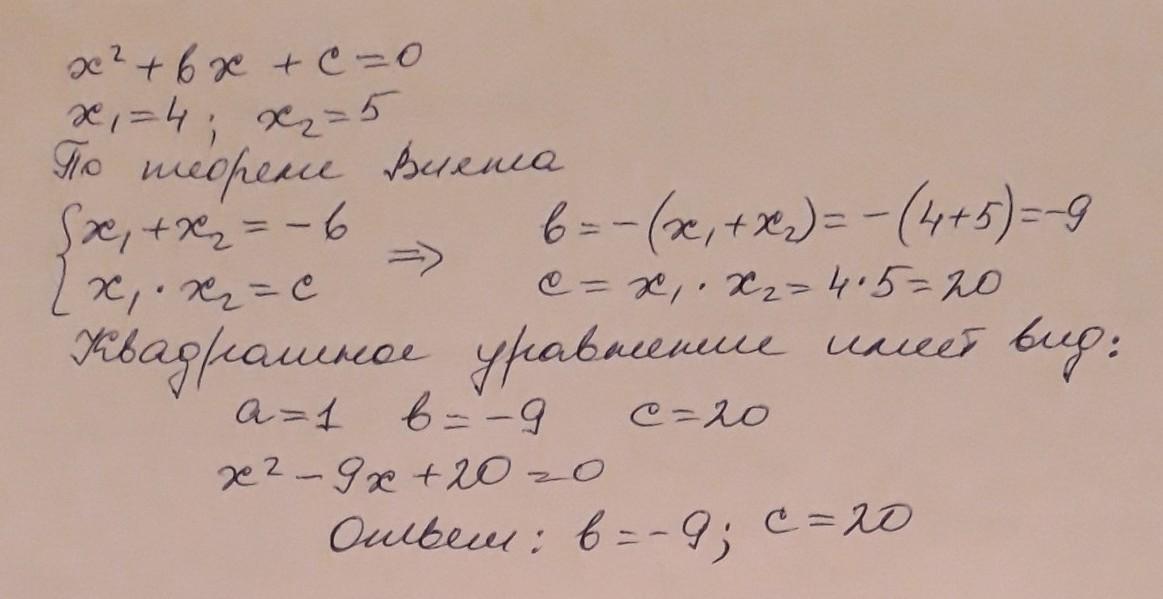 x² + bx + c = 0
x₁ = 4 ; x₂ = 5
По теореме Виета
{ x₁ + x₂ = -b ⇒ b = -(x₁ + x₂) = -(4+5) = -9
{ x₁ · x₂ = c c = x₁ · x₂ = 4·5 = 20
Квадратное уравнение имеет вид:
a = 1 b = -9 c = 20
x² - 9x + 20 = 0
Ответ: b = -9; c = 20